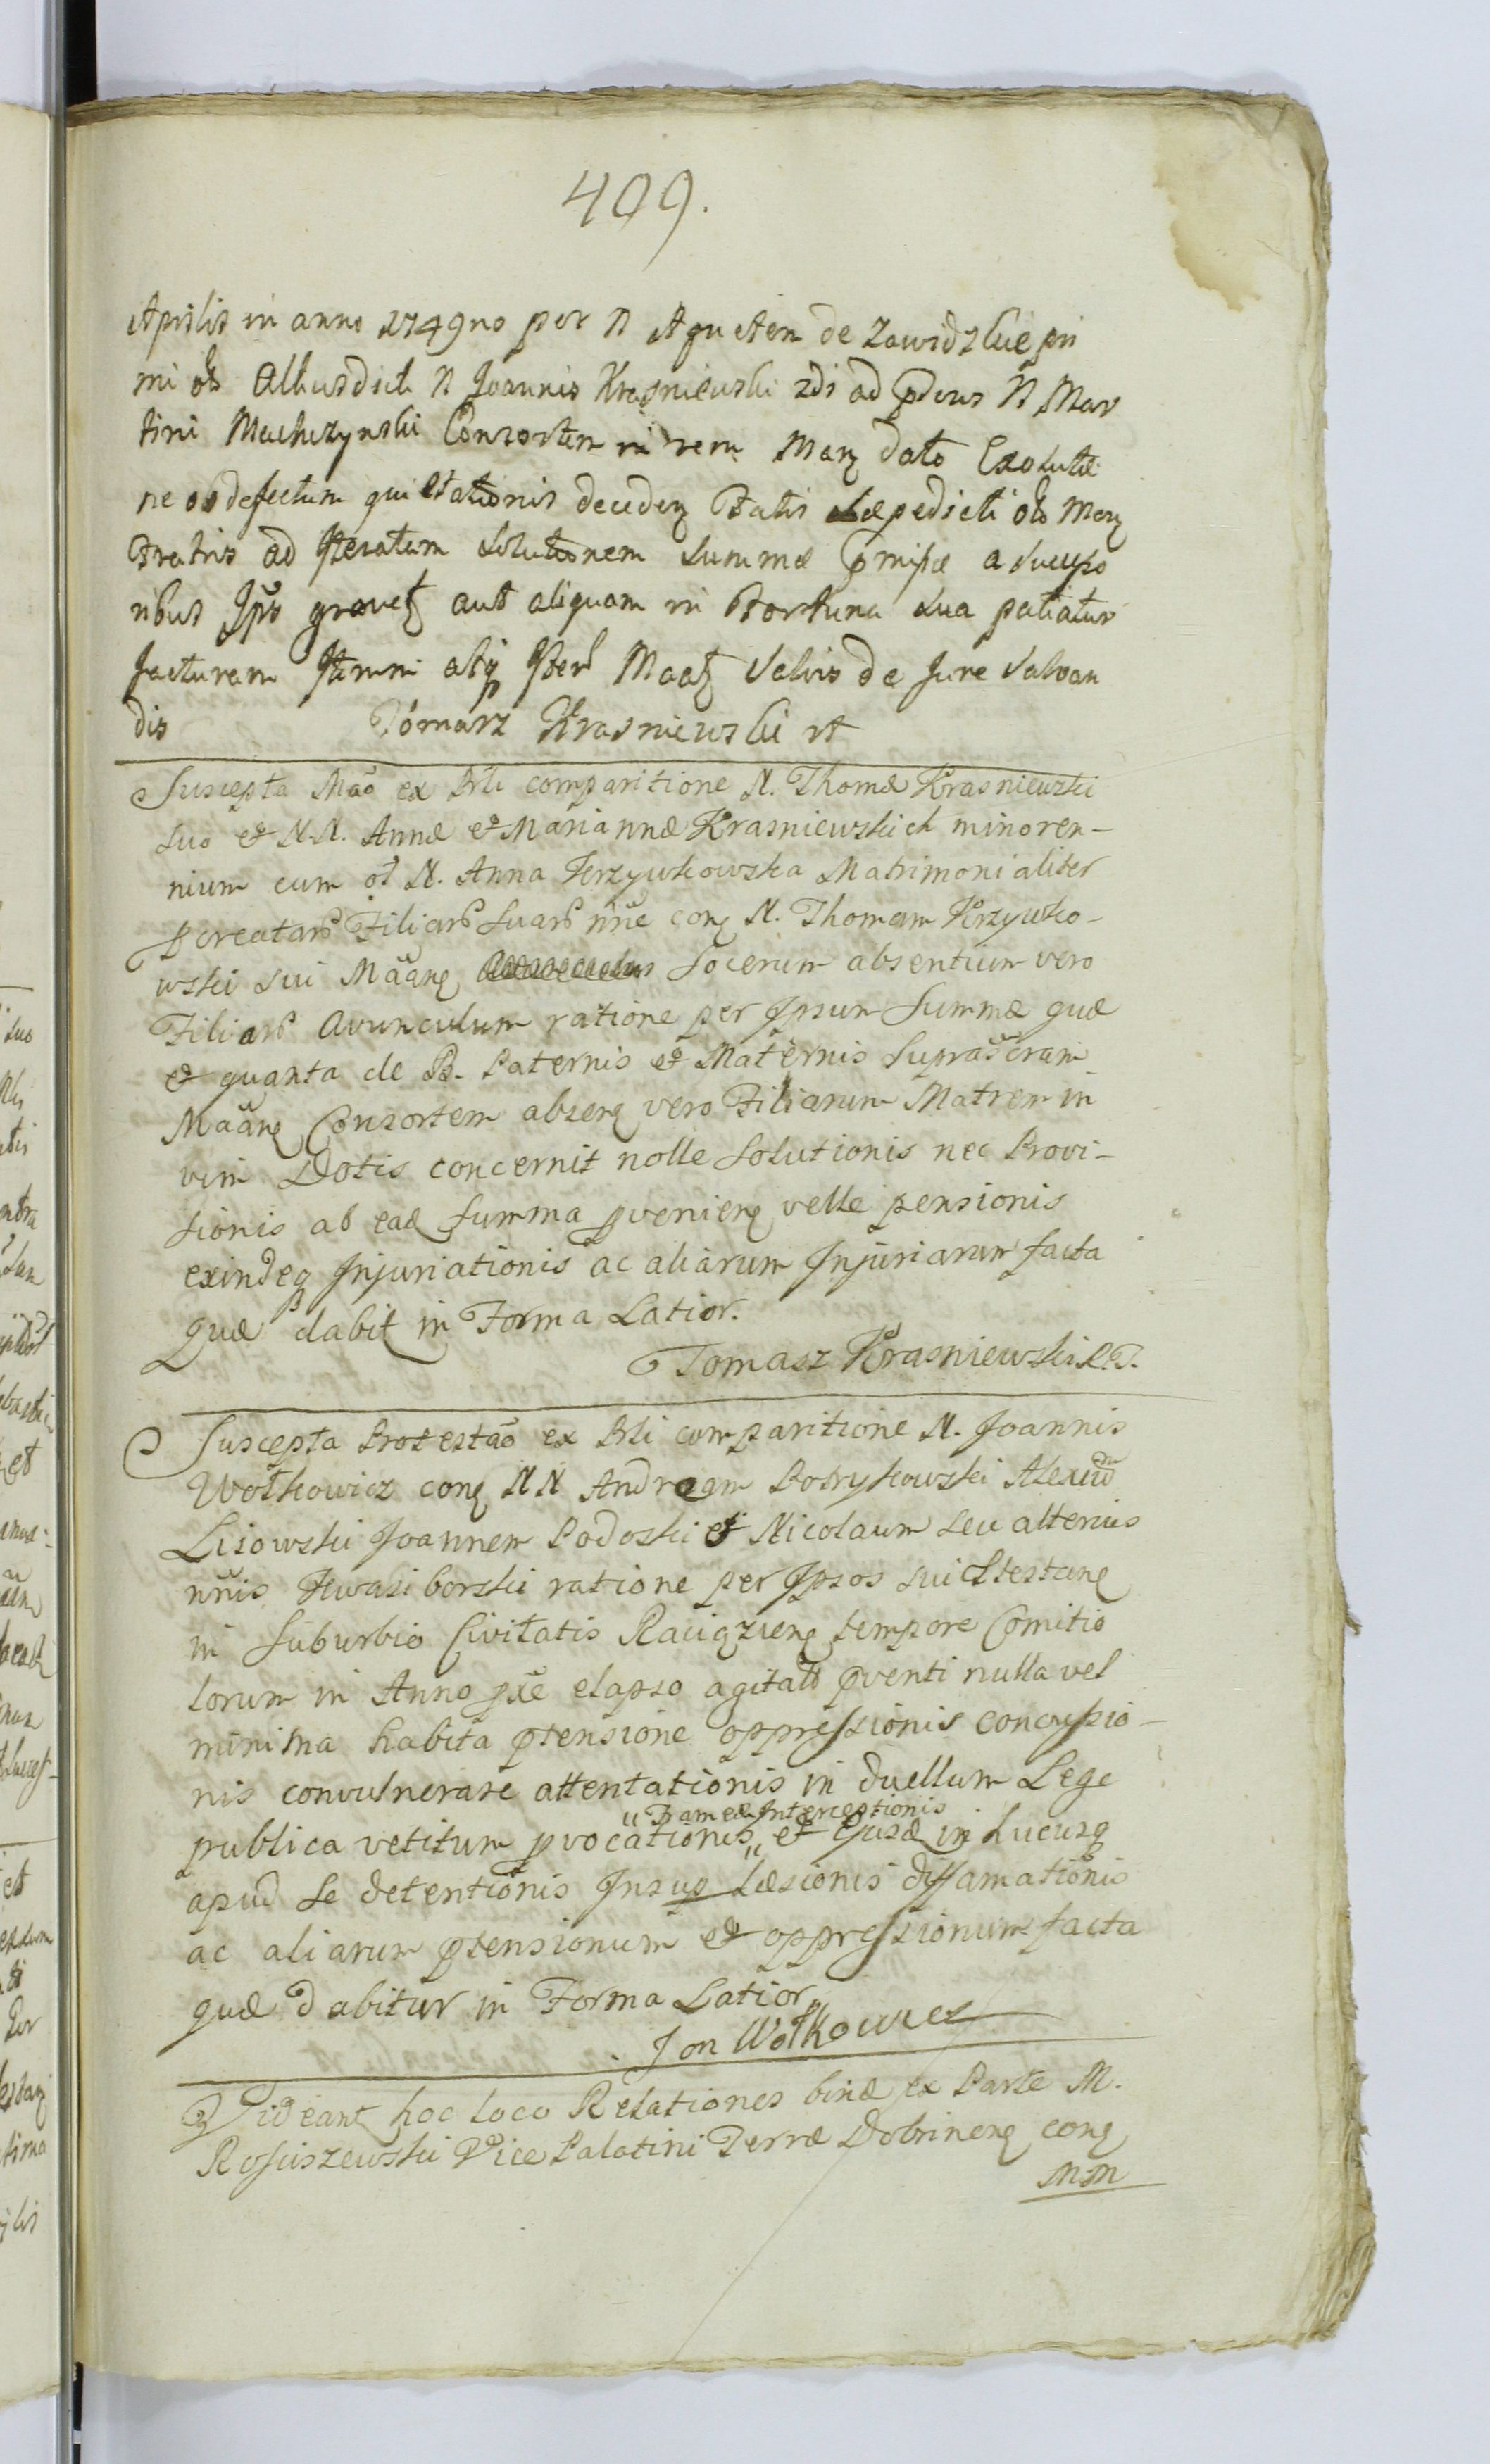 409.
Aprilis in anno 1749no per N Agnetem de Zawidzkie pri
mi olt Albusdicti N Joannis Krasniewski 2di ad pdens N Mar
tini Machczynski Consortem in rem Man dato Exolutæ
ne ob defectum quiettationis deceden Fatis sæpedicti olt Man
Fratris ad Iteratam solutionem summæ pmissæ a success
ribus Ipse gravet aut aliquam in Fortuna sua patiatur
jacturam Itermi atq Iter Maat salvis de Jure salvan
dis Tomasz Krasniewski rt
Suscepta Mao ex Psli comparitione N. Thomæ Krasniewski
suo et N.N. Annæ et Mariannæ Krasniewskich minoren-
nium cum ol N. Anna Krzywkowska Matrimonialiter
pcreatar Filiar suar nne con N. Thomam Krzywko-
wski sui Maan Socerum absentium vero
Filiar Avunculum ratione per Ipsum Summæ quæ
et quanta de B. Paternis et Maternis suprascram
Maan Consortem absen vero Filiarum Matrem in
vim Dotis concernit nolle Solutionis nec Provi-
sionis ab ead summa pvenien velle pensionis
exindeq Injuriationis ac aliarum Injuriarum facta
quæ dabit in Forma Latior.
Tomasz Krasniewski R.T.
Suscepta Protestao ex Psli comparitione N. Joannis
Wołkowicz con NN Andream Potrykowski Alexum
Lisowski Joannem Podoski et Nicolaum seu alterius
nnis Kwasiborski ratione per Ipsos sui Ptestan
in suburbio Civitatis Raciązien tempore Comitio
lorum in Anno pxe elapso agitat pventi nulla vel
minima habita ptensione oppressionis concussio-
nis convulnerare attentationis in duellum Lege
" Frameæ Interceptionis
publica vetitum pvocationis " et Ejusd in hucusq
apud se detentionis Insup Læsionis diffamationis
ac aliarum ptensionum et oppressionum facta
quæ dabitur in Forma Latior
Jon Wołkowicz
Videant hoc loco Relationes binæ ex Parte M.
Rosciszewski Vice Palatini Terræ Dobrinen con
MM